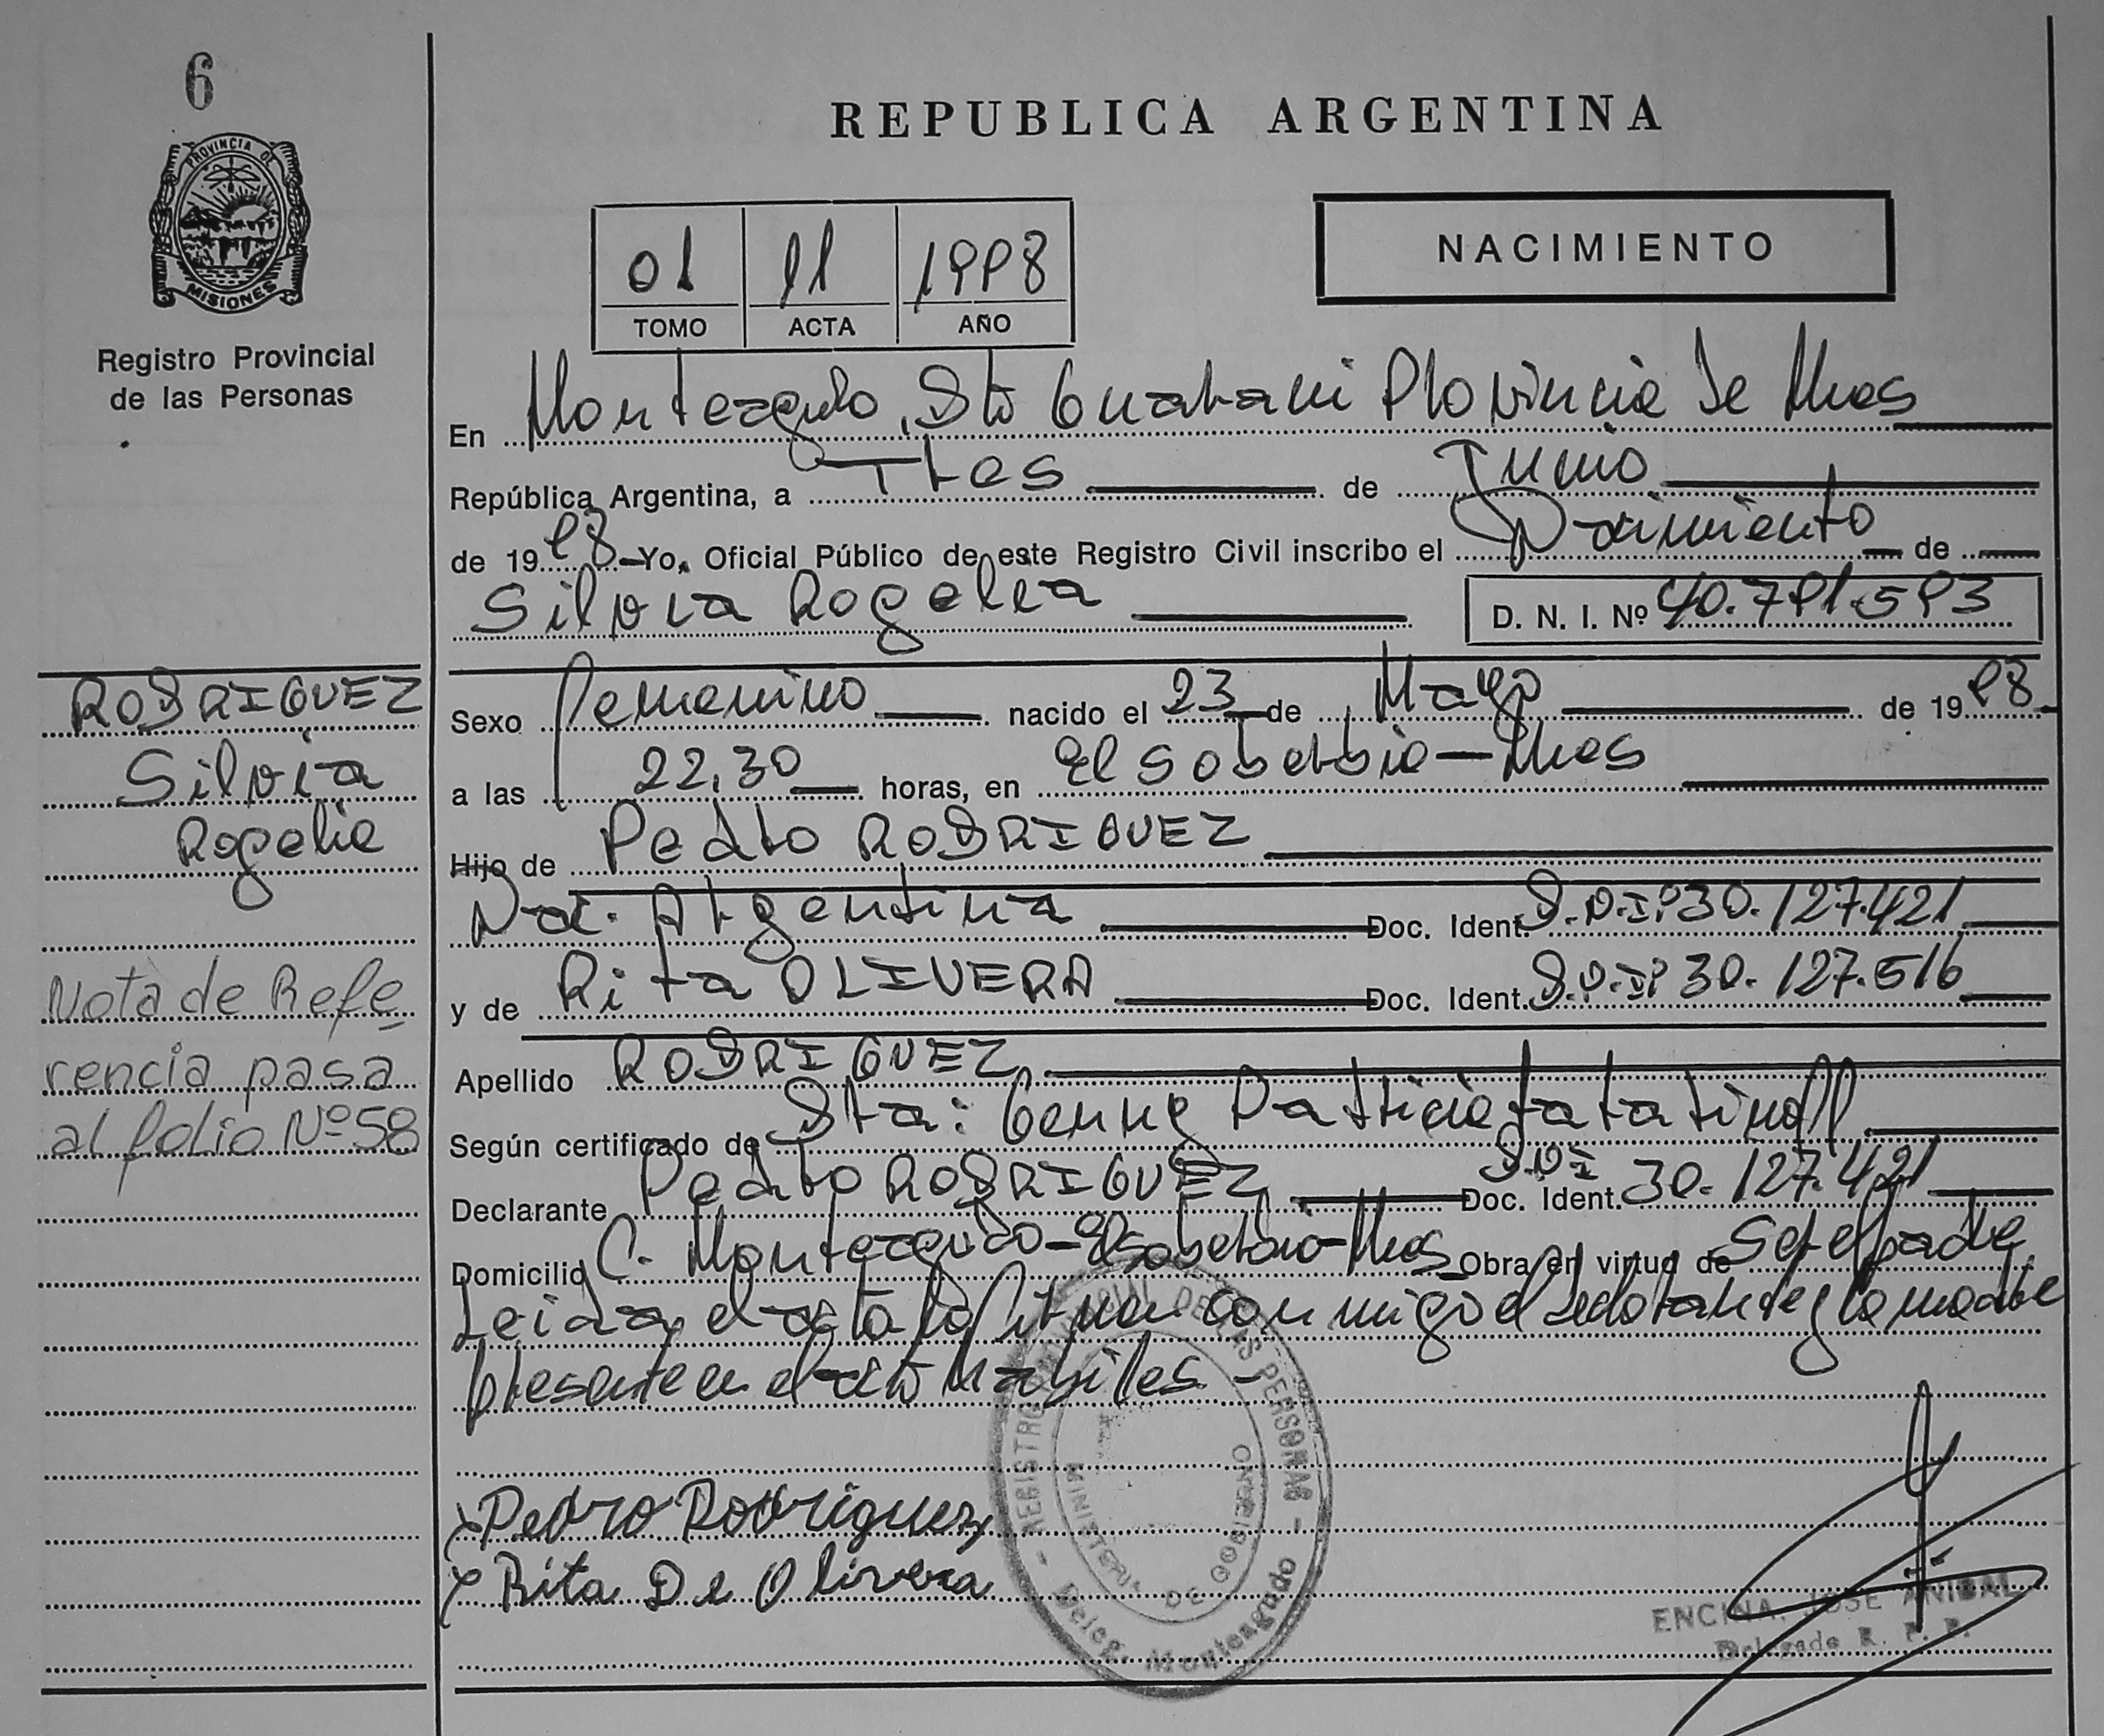 6
PROVINCIA DE
MISIONES
Registro Provincial
de las Personas
REPUBLICA ARGENTINA
01 11 1998
TOMO ACTA AÑO
NACIMIENTO
En Monteagudo, Dto Guarani Provincia de Mnes
República Argentina, a Tres de Junio
de 1998 Yo, Oficial Público de este Registro Civil inscribo el Nacimiento de
Silvia Rogelia D. N. I. Nº 40.791.593
RODRIGUEZ
Silvia
Rogelia
Nota de Refe
rencia pasa
al folio Nº 58
Sexo Femenino nacido el 23 de Mayo de 1998
a las 22,30 horas, en El Soberbio - Mnes
Hijo de Pedro RODRIGUEZ
Nac. Argentina Doc. Ident. D.N.I. 30.127.421
y de Rita OLIVERA Doc. Ident. D.N.I. 30.127.516
Apellido RODRIGUEZ
Según certificado de Sta: Patricia
Declarante Pedro RODRIGUEZ Doc. Ident. DNI 30.127.421
Domicilio C. Monteagudo - El Soberbio - Mnes Obra en virtud de Ser el padre
Leida el acta la firman conmigo el declarante y la madre
presente en el acto Habiles -
x Pedro Rodriguez
x Rita De Olivera
REGISTRO PROVINCIAL DE LAS PERSONAS
MINISTERIO DE GOBIERNO
Deleg. Monteagudo
ENCINA, JOSE ANIBAL
Delegado R. P. P.